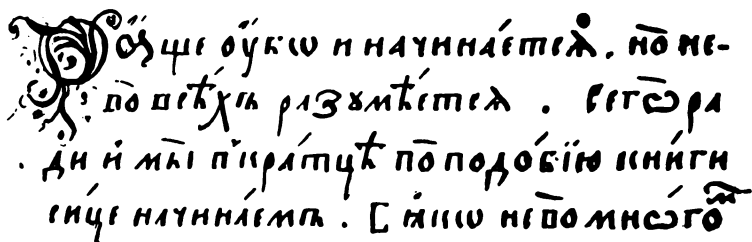 ѹ҆́бѡ и начина́етсѧ. по не-
по всѣ́хъ разꙋмѣ́етсѧ . Сегѡ̀ ра
ди и҆ мы̀ въкра́тцѣ по подо́бїю кни́ги
си́це начина́емъ . [ ꙗ҆́кѡ не по мнѡ́гоᷟ